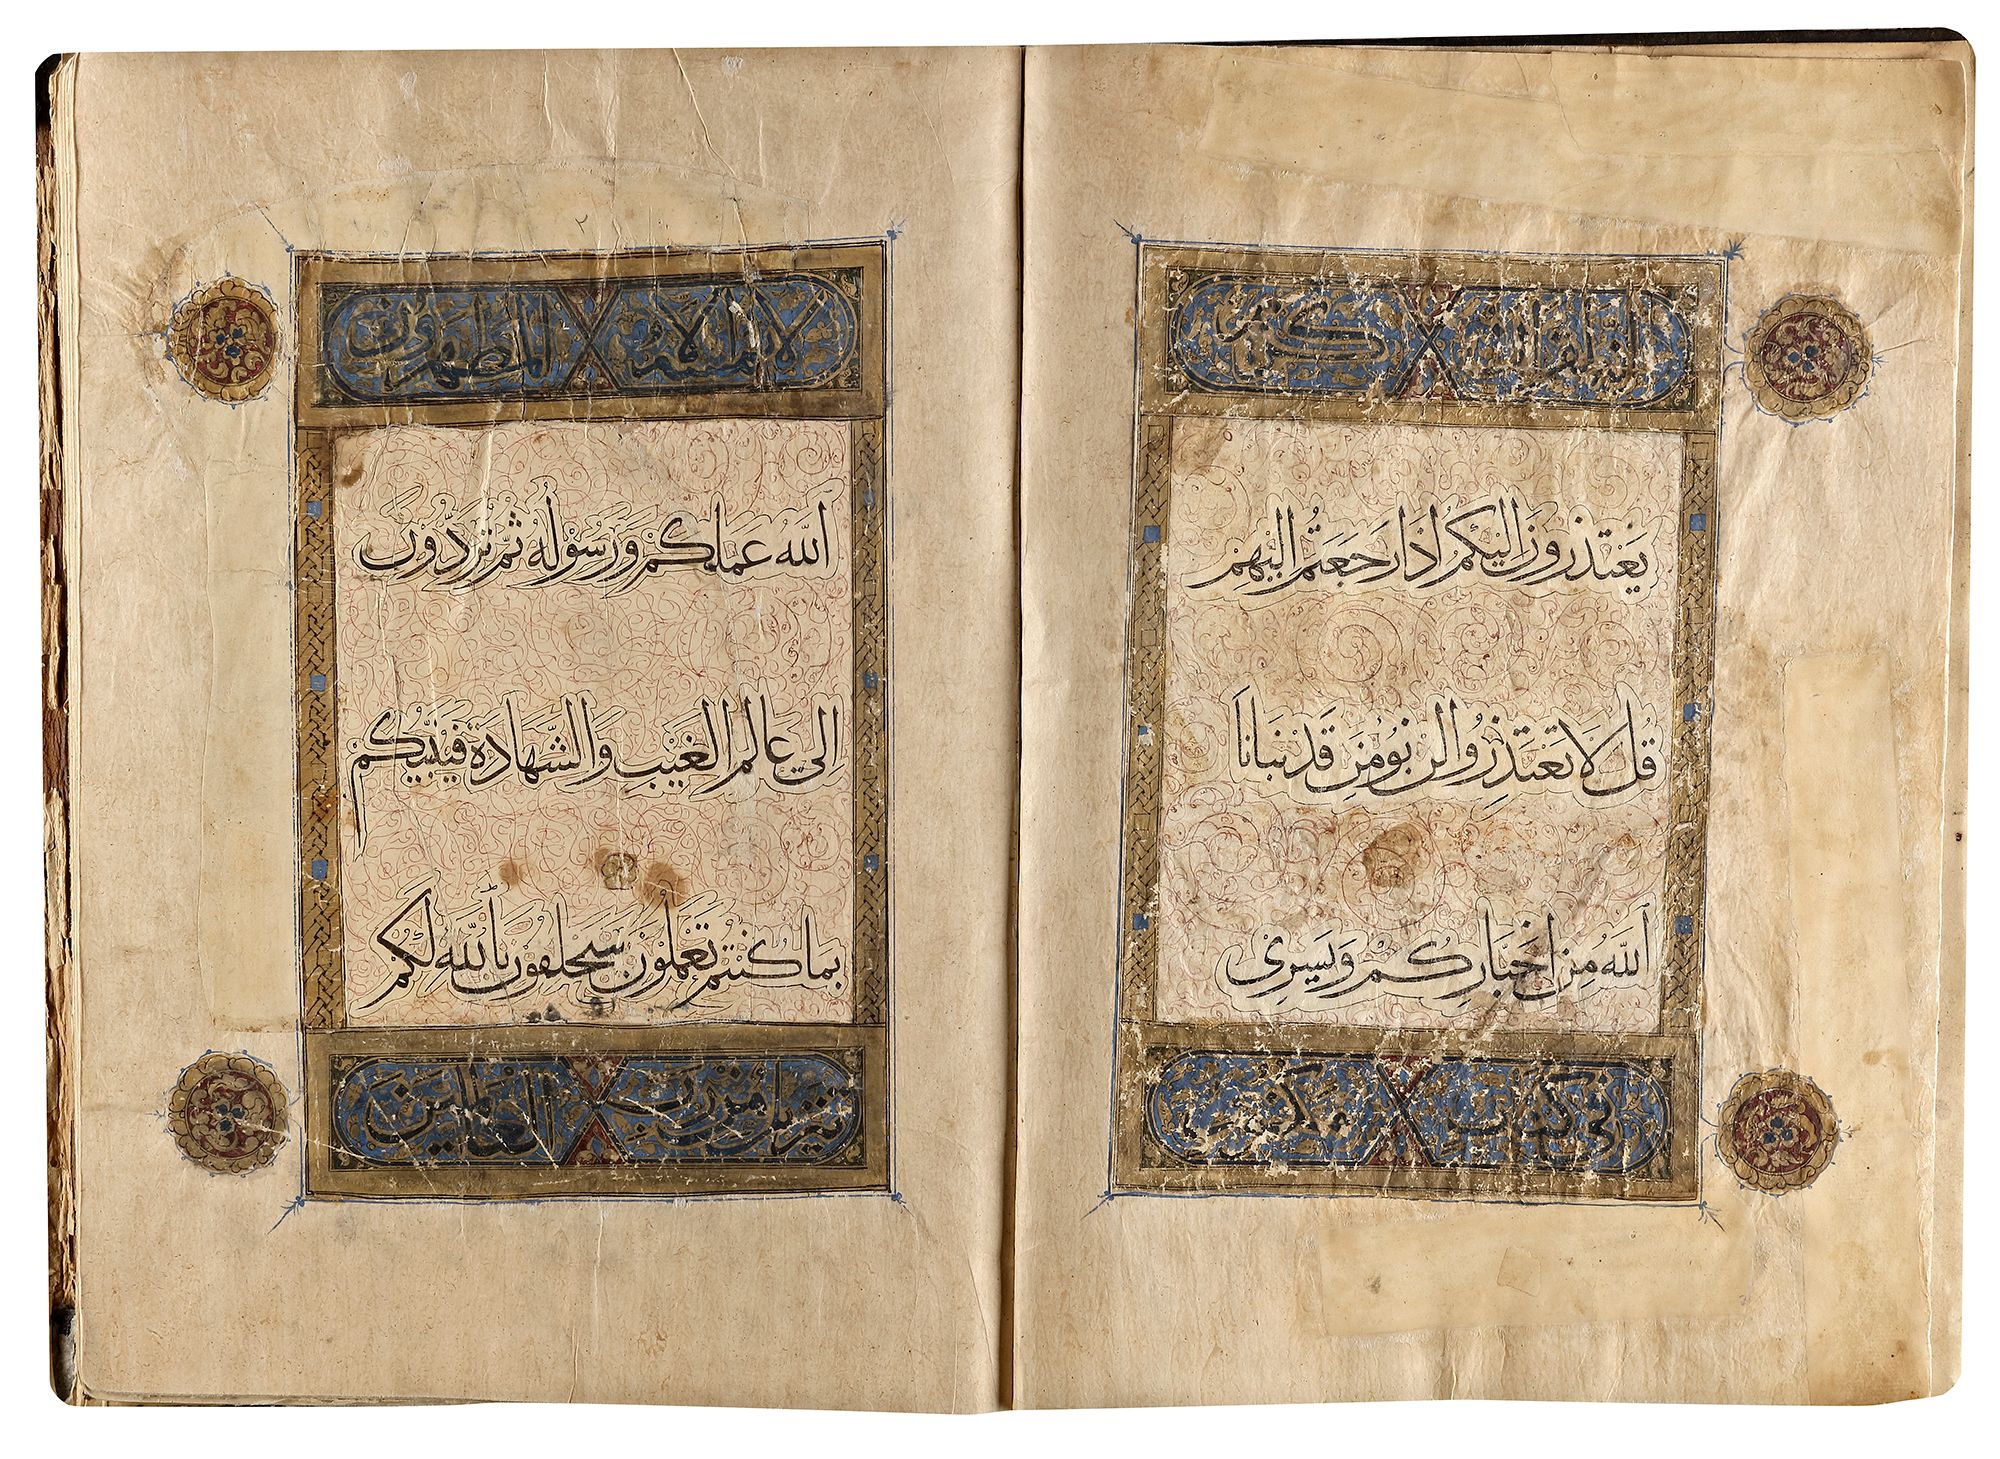 انه لقران كريم
يَعْتَذِرُونَ اِلَيْكُمْ اِذَا رَجَعْتُمْ اِلَيْهِمْ
قُل لَا تَعْتَذِرُوا لَن نُومِنَ قَد نَبَّانَا
اَللّٰهُ مِن اَخْبَارِكُمْ وَسَيَرَى
في كتاب مكنون
لا يمسه الا المطهرون
اَللّٰهُ عَمَلَكُمْ وَرَسُولُهُ ثُمَّ تُرَدُّونَ
اِلَى عَالِمِ الْغَيْبِ وَالشَّهَادَةِ فَيُنَبِّيُكُم
بِمَا كُنْتُمْ تَعْمَلُونَ سَيَحْلِفُونَ بِاللّٰهِ لَكُمْ
تنزيل من رب العالمين